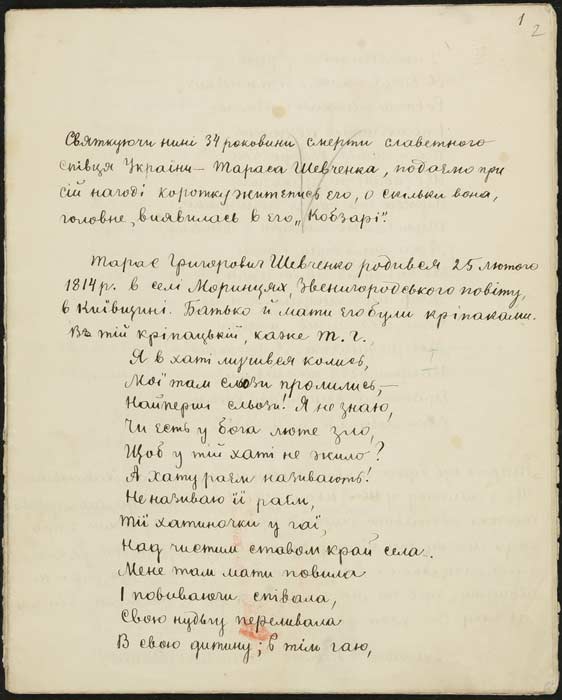 1
2
Святкуючи нині 34 роковини смерти славетного
співця України – Тараса Шевченка, подаємо при
сій нагоді коротку житєпись его, о скільки вона,
головне, виявилась в его „Кобзарі“.
Тарас Григорович Шевченко родився 25 лютого
1814 р. в селі Моринцях, Звенигородського повіту,
в Київщині. Батько й мати его були кріпаками.
В тій кріпацькій, каже Т. Г.,
Я в хаті мучився колись,
Мої там сльози пролились,–
Найперші сльози! Я не знаю,
Чи єсть у бога люте зло,
Щоб у тій хаті не жило?
А хату раєм називають!
Не називаю її раєм,
Тії хатиночки у гаї,
Над чистим ставом край села.
Мене там мати повила
І повиваючи співала,
Свою нудьгу переливала
В свою дитину; в тім гаю,